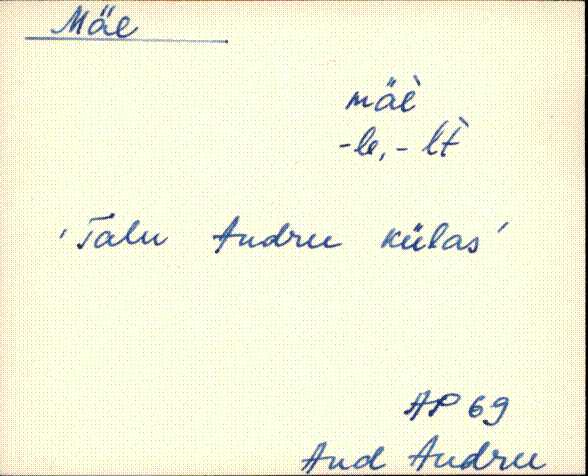 Mäe
mäè
-le, - lt̀
'Talu Andru külas'
AP 69
Aud Audru